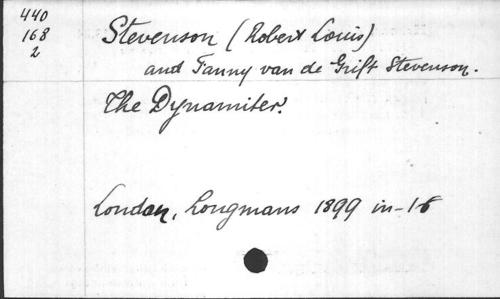 440
168
2
Stevenson (Robert Louis)
and Fanny van de Grift Stevenson.
The Dynamiter.
London, Longmans 1899 in-16